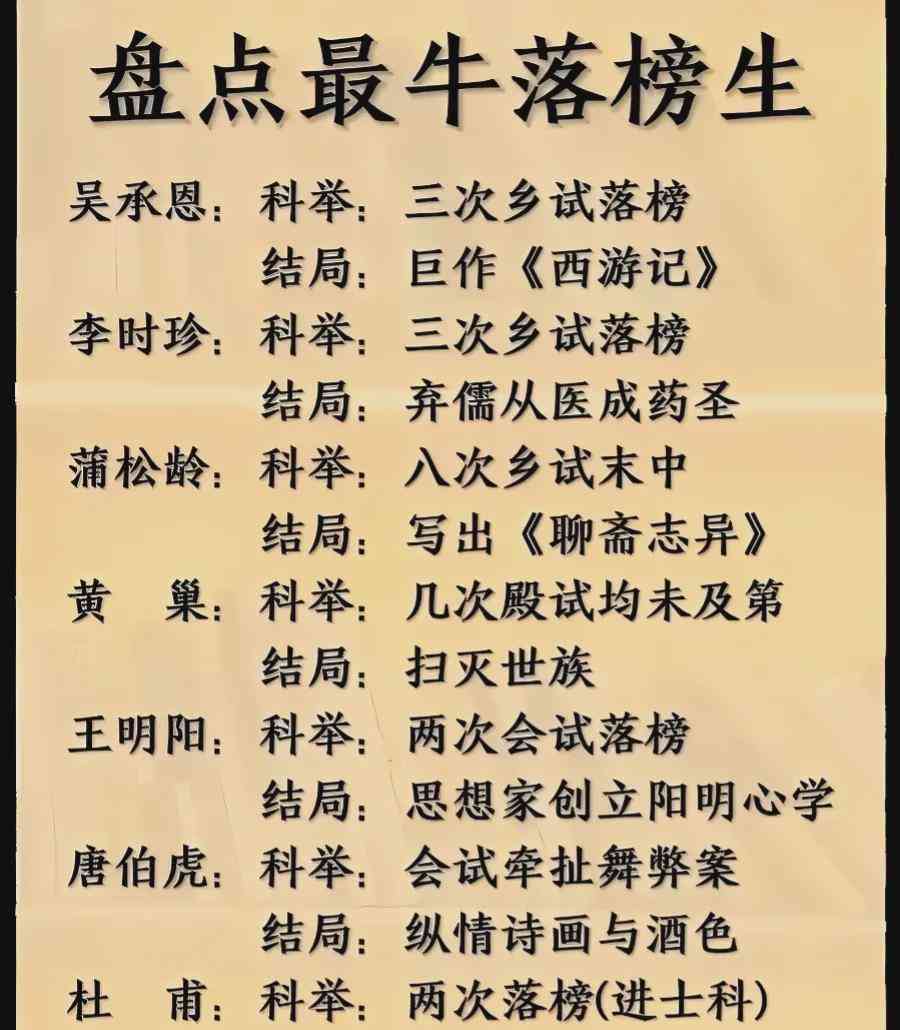 盘点最牛落榜生
吴承恩：科举：三次乡试落榜
结局：巨作《西游记》
李时珍：科举：三次乡试落榜
结局：弃儒从医成药圣
蒲松龄：科举：八次乡试末中
结局：写出《聊斋志异》
黄　巢：科举：几次殿试均未及第
结局：扫灭世族
王明阳：科举：两次会试落榜
结局：思想家创立阳明心学
唐伯虎：科举：会试牵扯舞弊案
结局：纵情诗画与酒色
杜　甫：科举：两次落榜(进士科)